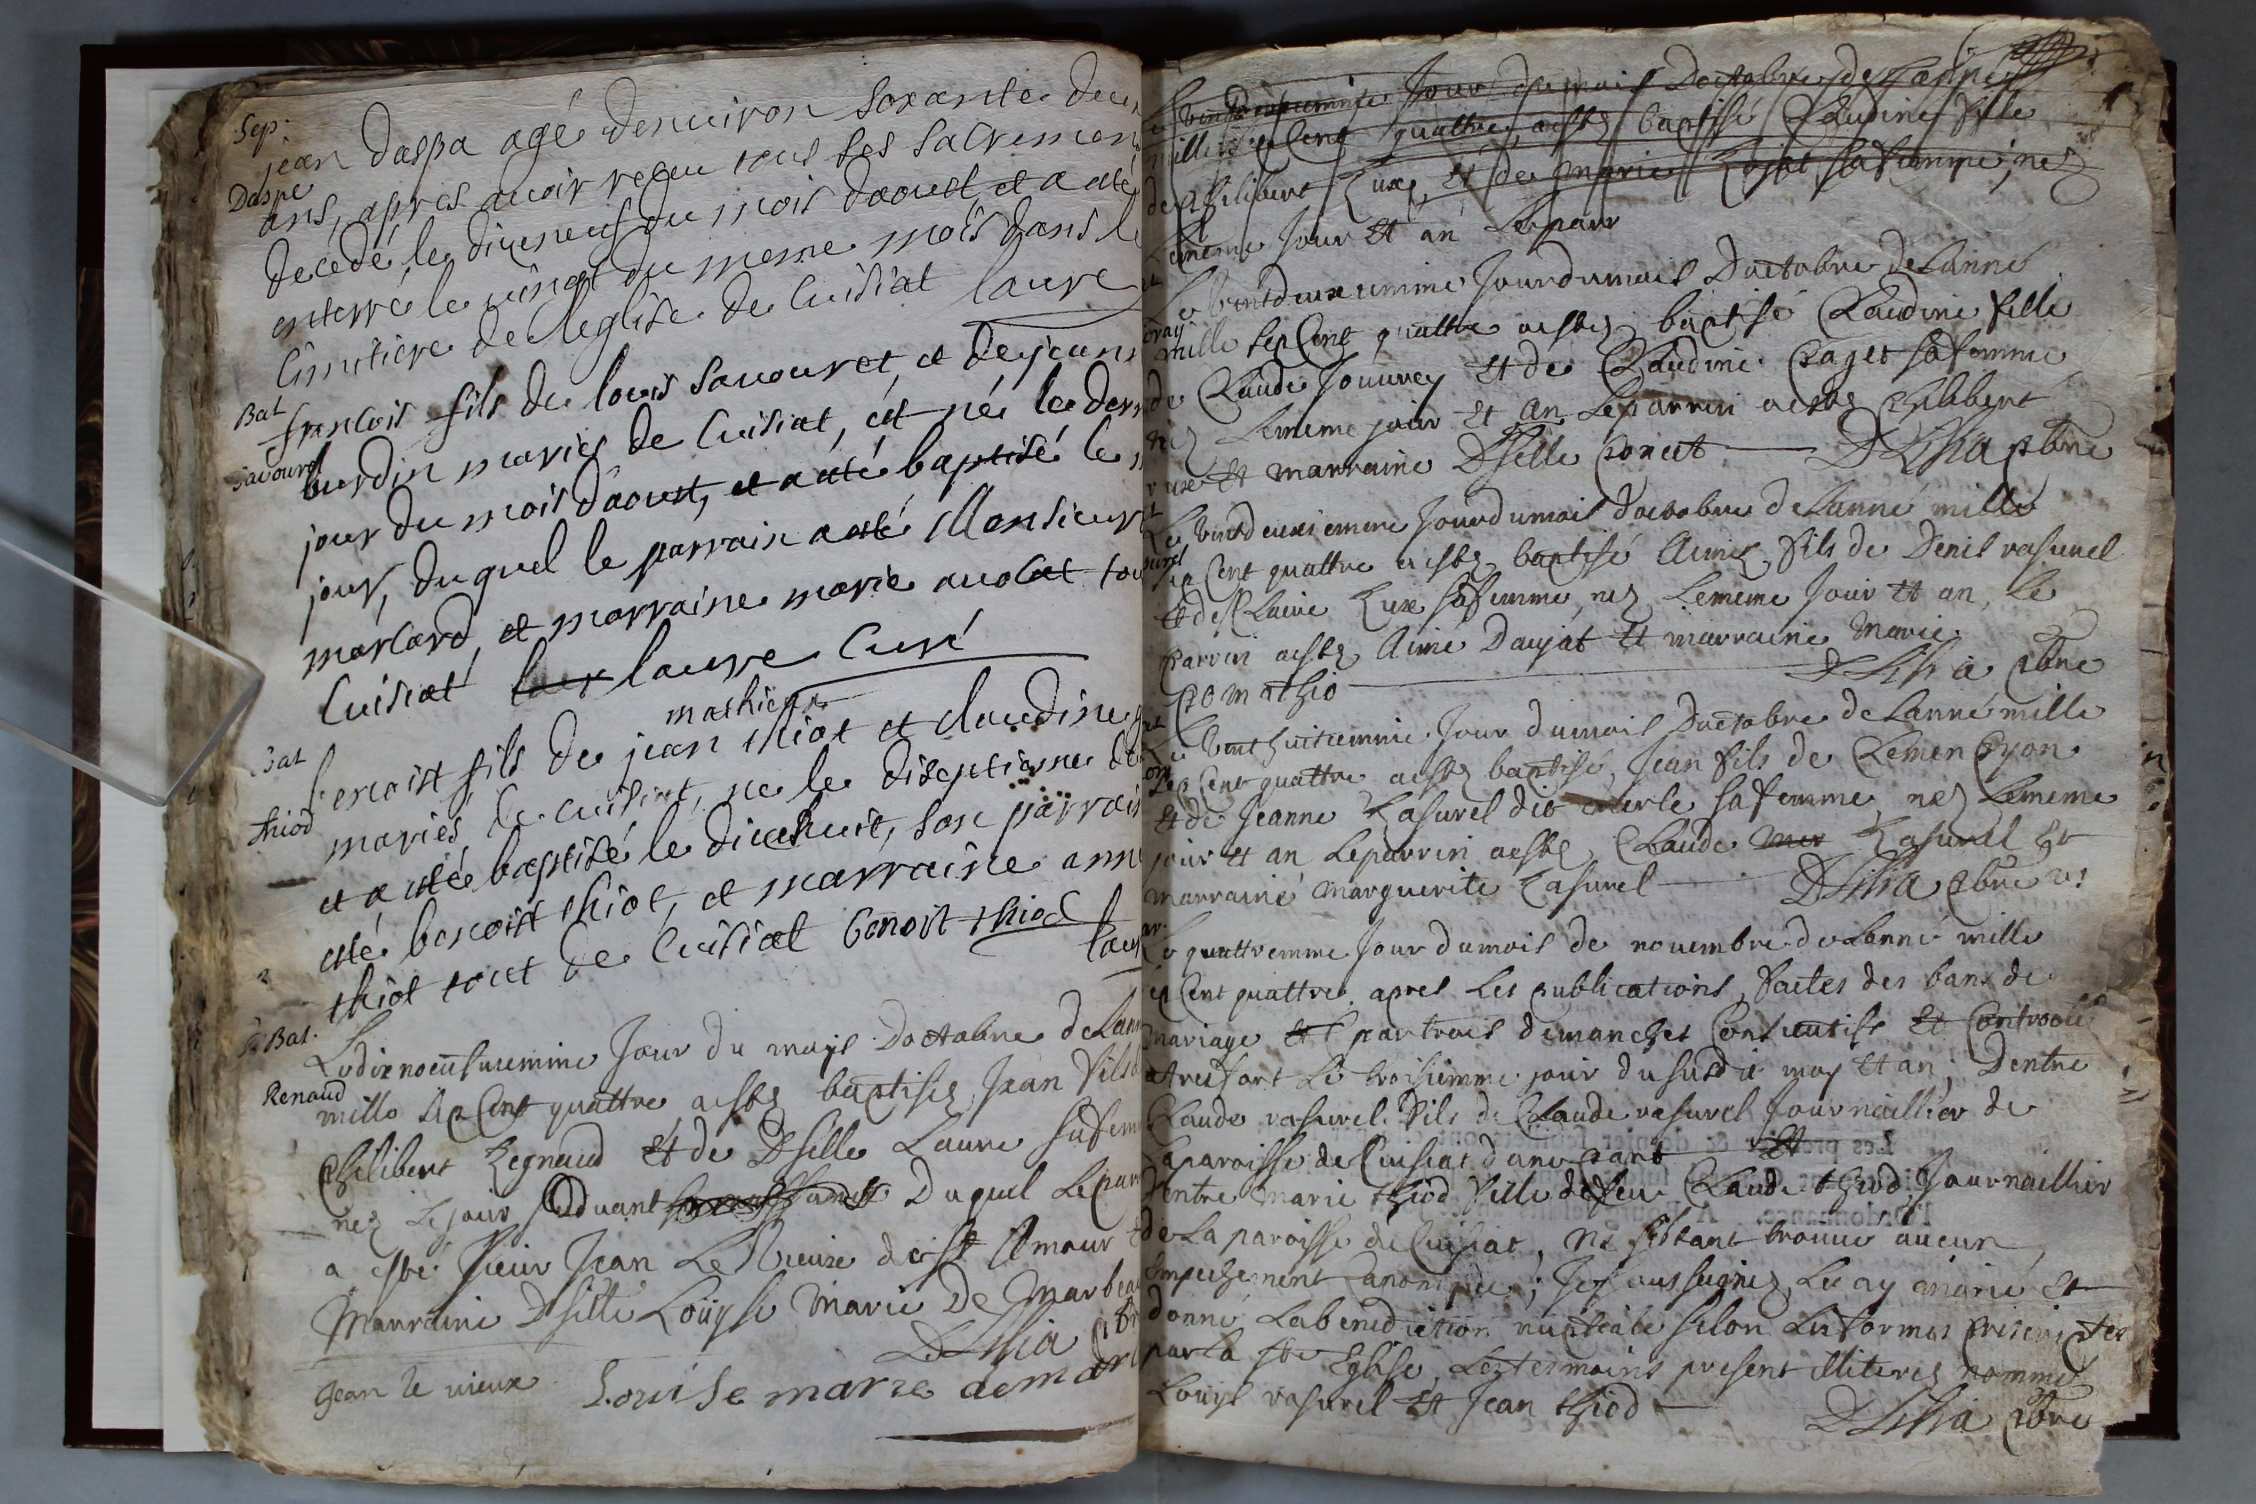 Sep.
Daspe
jean daspa agé denuiron soxante deux
ans, apres auoir reçeu tous ses sacremen
decedé le dixneuf du mois daoust et a eté
enterré le vingt du meme mois dans le
cimitiere de leglise de Cuisiat laure
Bat
Sauouret
françois fils de louis sauouret, et de jeann
burdin mariés de Cuisiat, ést né le der
jour du mois d'aoust, et a été baptisé le
jour, duquel le parrain a eté Monsieur
marcard, et marraine marie auocat tou
Cuisiat laur laure Curé
Bat
thiod
mathieu
benoist fils de jean thiot et claudine
mariés de cuisiat, ne le diseptieme de
et a été baptisé le dixehuit, son parrain
eté benoist thiot, et marraine ann
thiot tout de Cuisiat benoit thiod
laur
Bat.
Renaud
Le dixneufuiemme Jour du moys Doctobre de Lann
mille sept Cent quattre a esté baptisez Jean Fils d
Philibert Regnaud et de Dselle Laure sa fem
nez Le jour Séduant Duquel Le par
a esté sieur Jean Le Vieux de st Amour
Marraine Dselle Loüyse Marie De Marbeau
DLisia pbr
Jean le uieux Louise marie demarb
Le vintdeuxiemme Jour du mois Doctobre de Lanné
mille sept Cent quattre a esté baptisé Claudine fille
de Philibert et de Marie sa femme, nez
Le meme Jour et an Le parr
Le vintdeuxiemme Jour du mois Doctobre de Lanné
mille sept Cent quattre a estez baptisé Claudine fille
de Claude Jouurey et de Claudine Paget sa femme
nez Le meme jour et an Le parrin a estez Philibert
et marraine Dselle Poncet DLisia pbre
Le vintdeuxiemme Jour du mois doctobre de Lanné mille
sept Cent quattre a estez baptisé Aimé, fils de Denis vasurel
et de Claire Rux sa femme, nez Lememe Jour et an, Le
parrin a estez Aimé Daujat et marraine Marie
Pomathio DLisia pbre
Le vint huitiemme Jour du mois Doctobre de Lanné mille
sept Cent quattre a estez baptisé, Jean fils de Clemen Pyon
et de Jeanne Vasurel dit merle sa femme nez Lememe
jour et an Le parrin a estez Claude mer Vasurel et
marrainé Marguerite Vasurel DLisia pbre v:
Le quattriemme Jour du mois de nouembre de Lanné mille
sept Cent quattre, apres Les publications, faites des bans de
mariage et par trois dimanches Consecutifs et Controolé
a treffort Le troisiemme jour du susdit moy et an; Dentre
Claude vasurel fils de Claude vasurel Journaillier de
La paroisse de Cuisiat dune part Et
Dentre Marie thiod fille de feu Claude thiod, Journaillier
de La paroisse de Cuisiat, Ne sestant trouué aucun
empechement Canonique; Je soussignez Les ay marié et
donné La benediction nuptiale selon Les formes prescriptes
par La ste Eglise, Les temoins present illiterez nommés
Louys vasurel et Jean thiod DLisia pbre